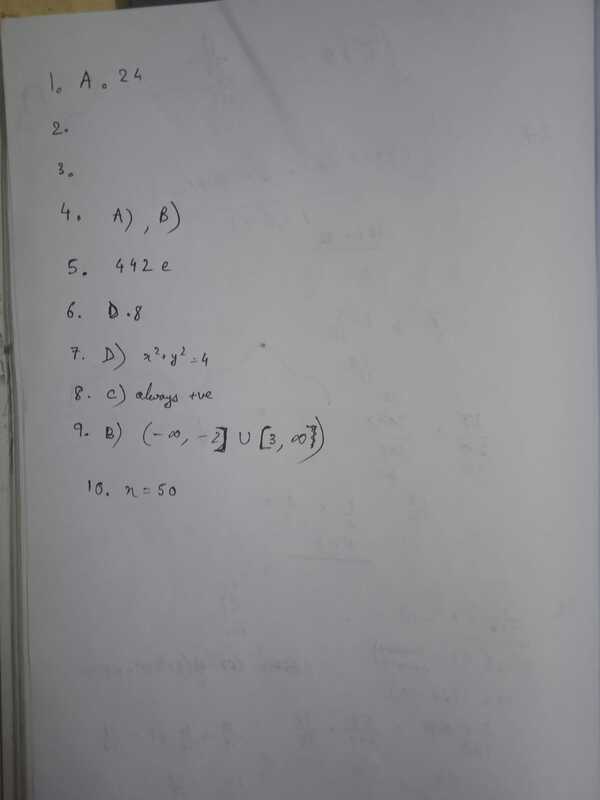 1. A. 24
2.
3.
4. A), B)
5. 442 e
6. D. 8
7. D) x²+y²=4
8. C) always +ve
9. B) (-∞, -2] ∪ [3, ∞)
10. n = 50